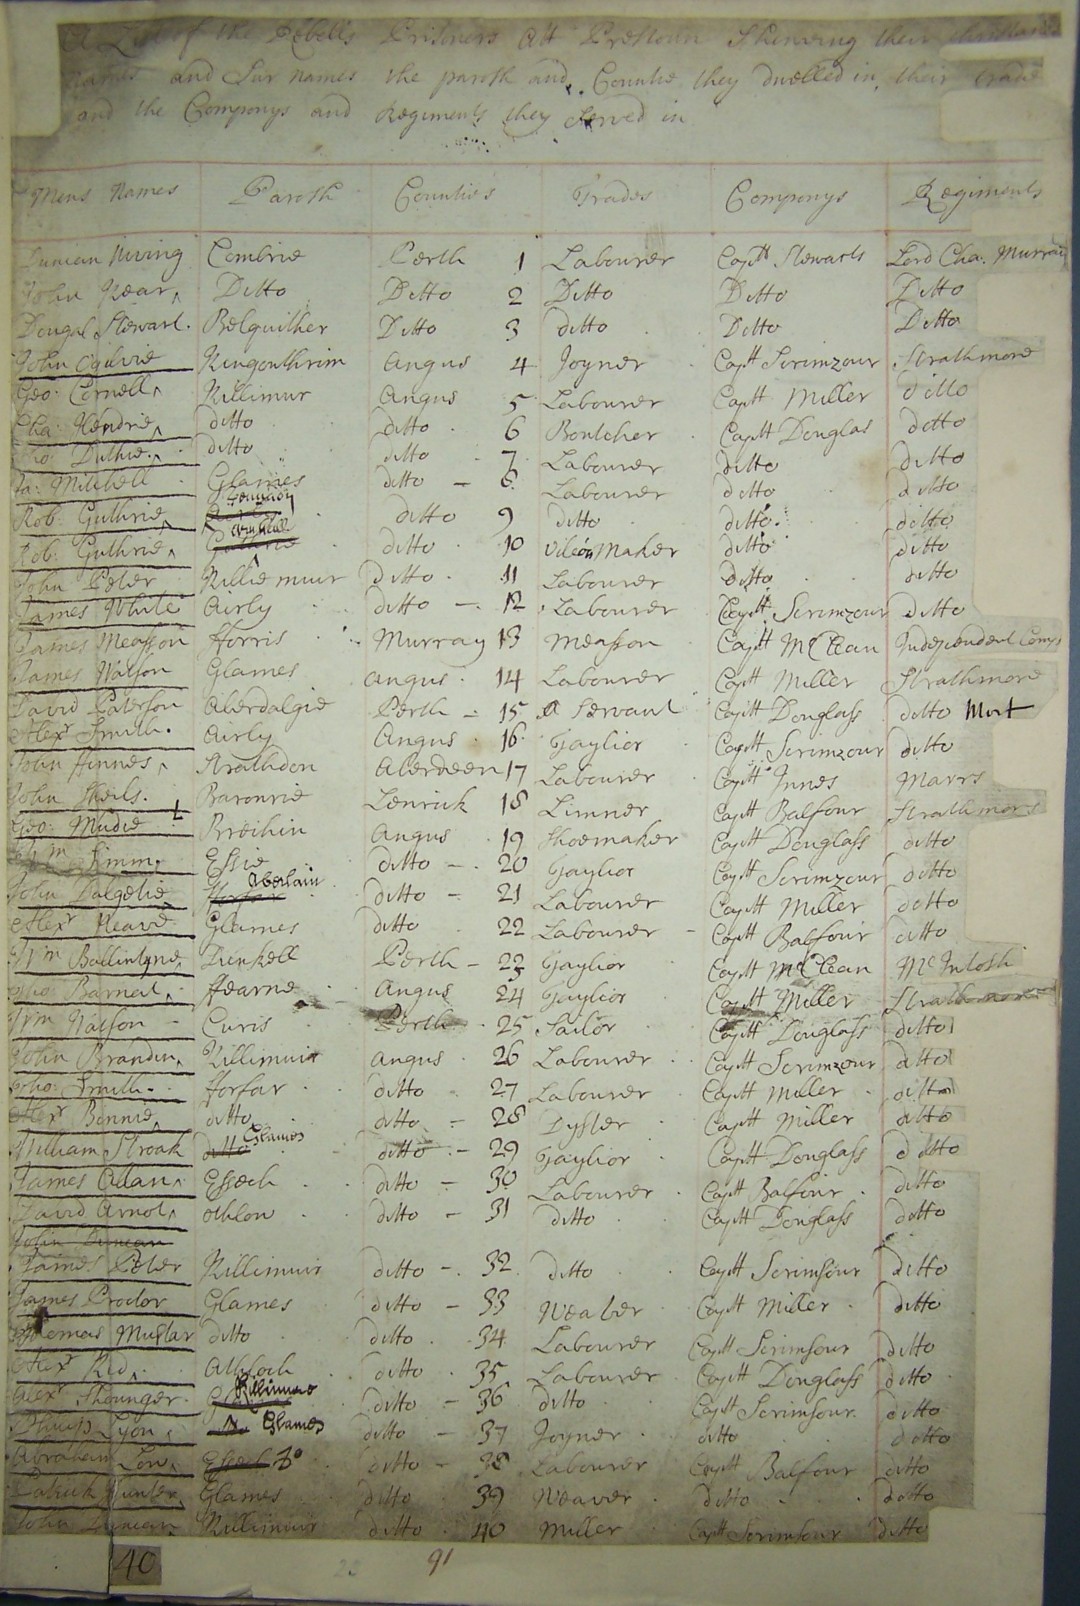 A List of the Rebells Prisoners Att Prestown Shewing their Christian
names and Sur names the parosh and Countie they dwelled in, their trade
and the Companys and Regiments they Served in
Mens Names Parosh Counties Trades Companys Regiments
Duncan Niving Combrie Perth 1 Labourer Captt Stewarts Lord Cha: Murray
John Kear Ditto Ditto 2 Ditto Ditto Ditto
Dougal Stewart. Belquither Ditto 3 ditto Ditto Ditto
John Ogilvie Kingoulthrim Angus 4 Joyner Captt Scrimzour Strathmore
Geo: Cornell Killimur Angus 5 Labourer Captt Miller Ditto
Cha: Hendrie ditto ditto 6 Boutcher Captt Douglas ditto
Tho: Duthie ditto ditto 7 Labourer ditto ditto
Ja: Mitchell Glames ditto 8 Labourer ditto ditto
Rob: Guthrie ditto 9 ditto ditto ditto
Rob: Guthrie ditto 10 Maker ditto ditto
John Peter Killie muir ditto 11 Labourer ditto ditto
James White Airly ditto 12 Labourer Captt Scrimzour Ditto
James Measson fforris Murray 13 Measson Captt McClean Independent Comp
James Watson Glames angus 14 Labourer Captt Miller Strathmore
David Paterson Aberdalgie Perth 15 a Servant Captt Douglass ditto Mort
Alexr Smith. Airly Angus 16 Taylior Captt Scrimzour ditto
John ffinnes Strathdon Aberdeen 17 Labourer Captt Innes Marrs
John Sheils. Baronrie Lenrick 18 Limner Captt Balfour Strathmors
Geo: Mudie Breihin Angus 19 Shoemaker Captt Douglass ditto
Wm Simm Essie ditto 20 Taylior Captt Scrimzour ditto
John Dalgetie fforfar Aberlain ditto 21 Labourer Captt Miller ditto
Alexr Neave Glames ditto 22 Labourer Captt Balfour ditto
Wm Ballintyne Dunkell Perth 23 Taylior Captt McClean McIntosh
Tho: Barnet ffearne Angus 24 Taylior Captt Miller Strathmore
Wm Watson Curis Perth 25 Sailor Captt Douglass ditto
John Brandin Killimuir Angus 26 Labourer Captt Scrimzour ditto
Tho: Smith fforfar ditto 27 Labourer Captt Miller ditto
Alexr Binnie ditto ditto 28 Dyster Captt Miller ditto
William Stroak ditto Glames ditto 29 Taylior Captt Douglass ditto
James Allan Essech ditto 30 Labourer Captt Balfour ditto
David Arnot othlon ditto 31 ditto Captt Douglass ditto
John Duncan
James Peter Killimuir ditto 32 ditto Captt Scrimsour ditto
James Proctor Glames ditto 33 Weaber Captt Miller ditto
Thomas Mustar ditto ditto 34 Labourer Captt Scrimsour ditto
Alexr Kid ditto 35 Labourer Captt Douglass ditto
Alexr Shounger Killimure ditto 36 ditto Captt Scrimsour ditto
Philip Lyon Glames ditto 37 Joyner ditto ditto
Abraham Low Essech Do ditto 38 Labourer Captt Balfour ditto
Patrick Hunter Glames ditto 39 Weaver Ditto ditto
John Duncan Killimuir ditto 40 Miller Captt Scrimsour ditto
40 23 91